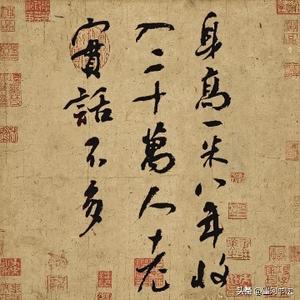 身高一米八年收
入二十萬人老
實話不多
头条